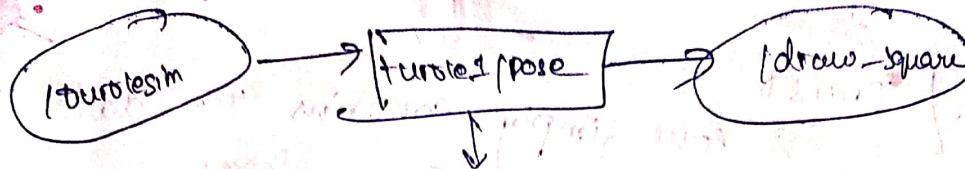 /turtlesim
/turtle1/pose
/draw-square